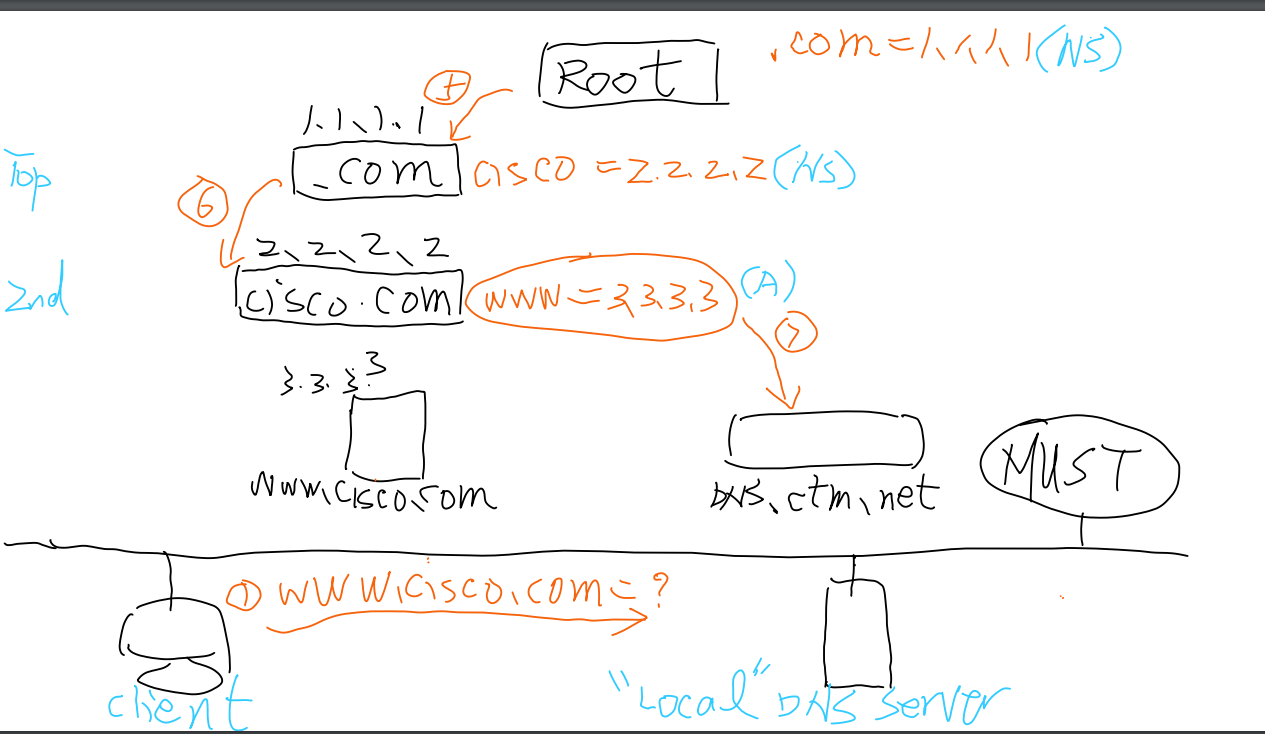 Root
.com=1.1.1.1(NS)
5
1.1.1.1
Top
.com
cisco=2.2.2.2(NS)
6
2.2.2.2
2nd
cisco.com
www=3.3.3.3
(A)
7
3.3.3.3
www.cisco.com
DNS.ctm.net
MUST
1 www.cisco.com=?
client
"Local" DNS server